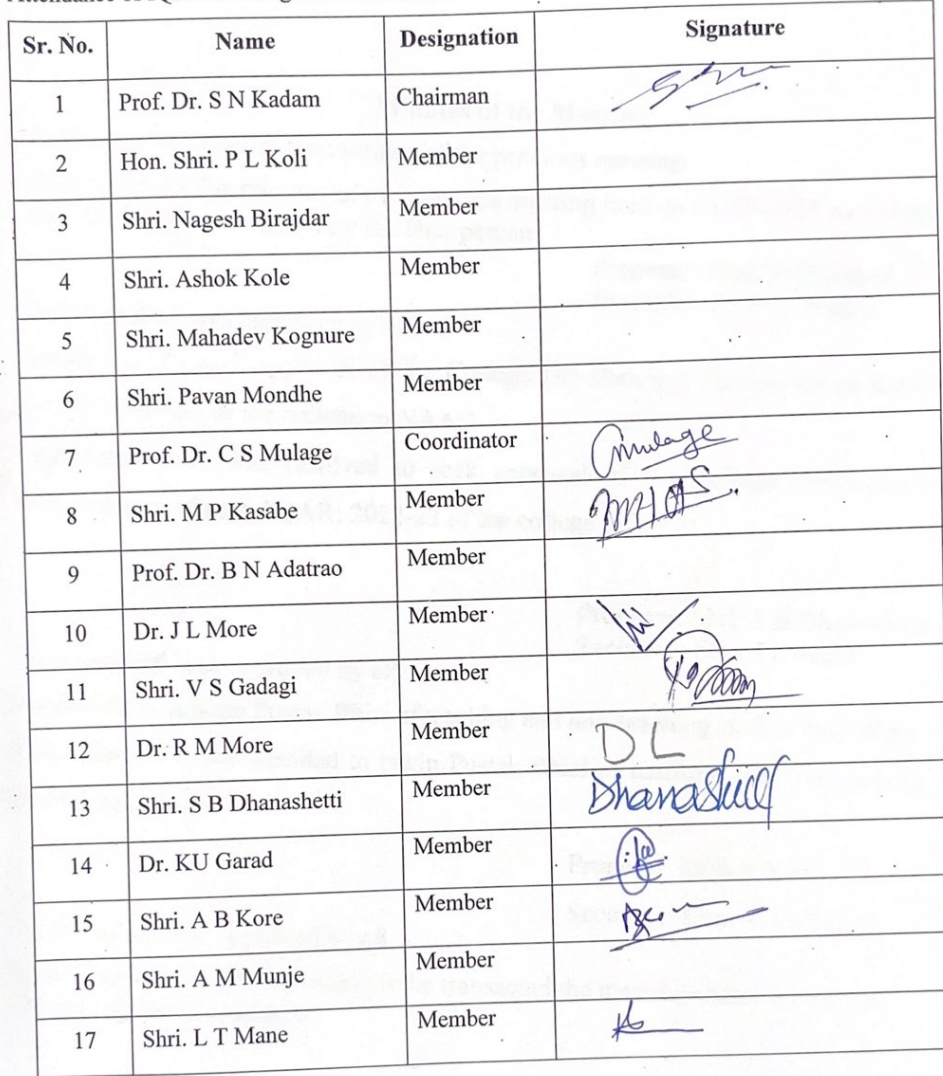 Sr. No. Name Designation Signature
1 Prof. Dr. S N Kadam Chairman
2 Hon. Shri. P L Koli Member
3 Shri. Nagesh Birajdar Member
4 Shri. Ashok Kole Member
5 Shri. Mahadev Kognure Member
6 Shri. Pavan Mondhe Member
7 Prof. Dr. C S Mulage Coordinator Cmulage
8 Shri. M P Kasabe Member
9 Prof. Dr. B N Adatrao Member
10 Dr. J L More Member
11 Shri. V S Gadagi Member
12 Dr. R M More Member DL
13 Shri. S B Dhanashetti Member
14 Dr. KU Garad Member
15 Shri. A B Kore Member
16 Shri. A M Munje Member
17 Shri. L T Mane Member